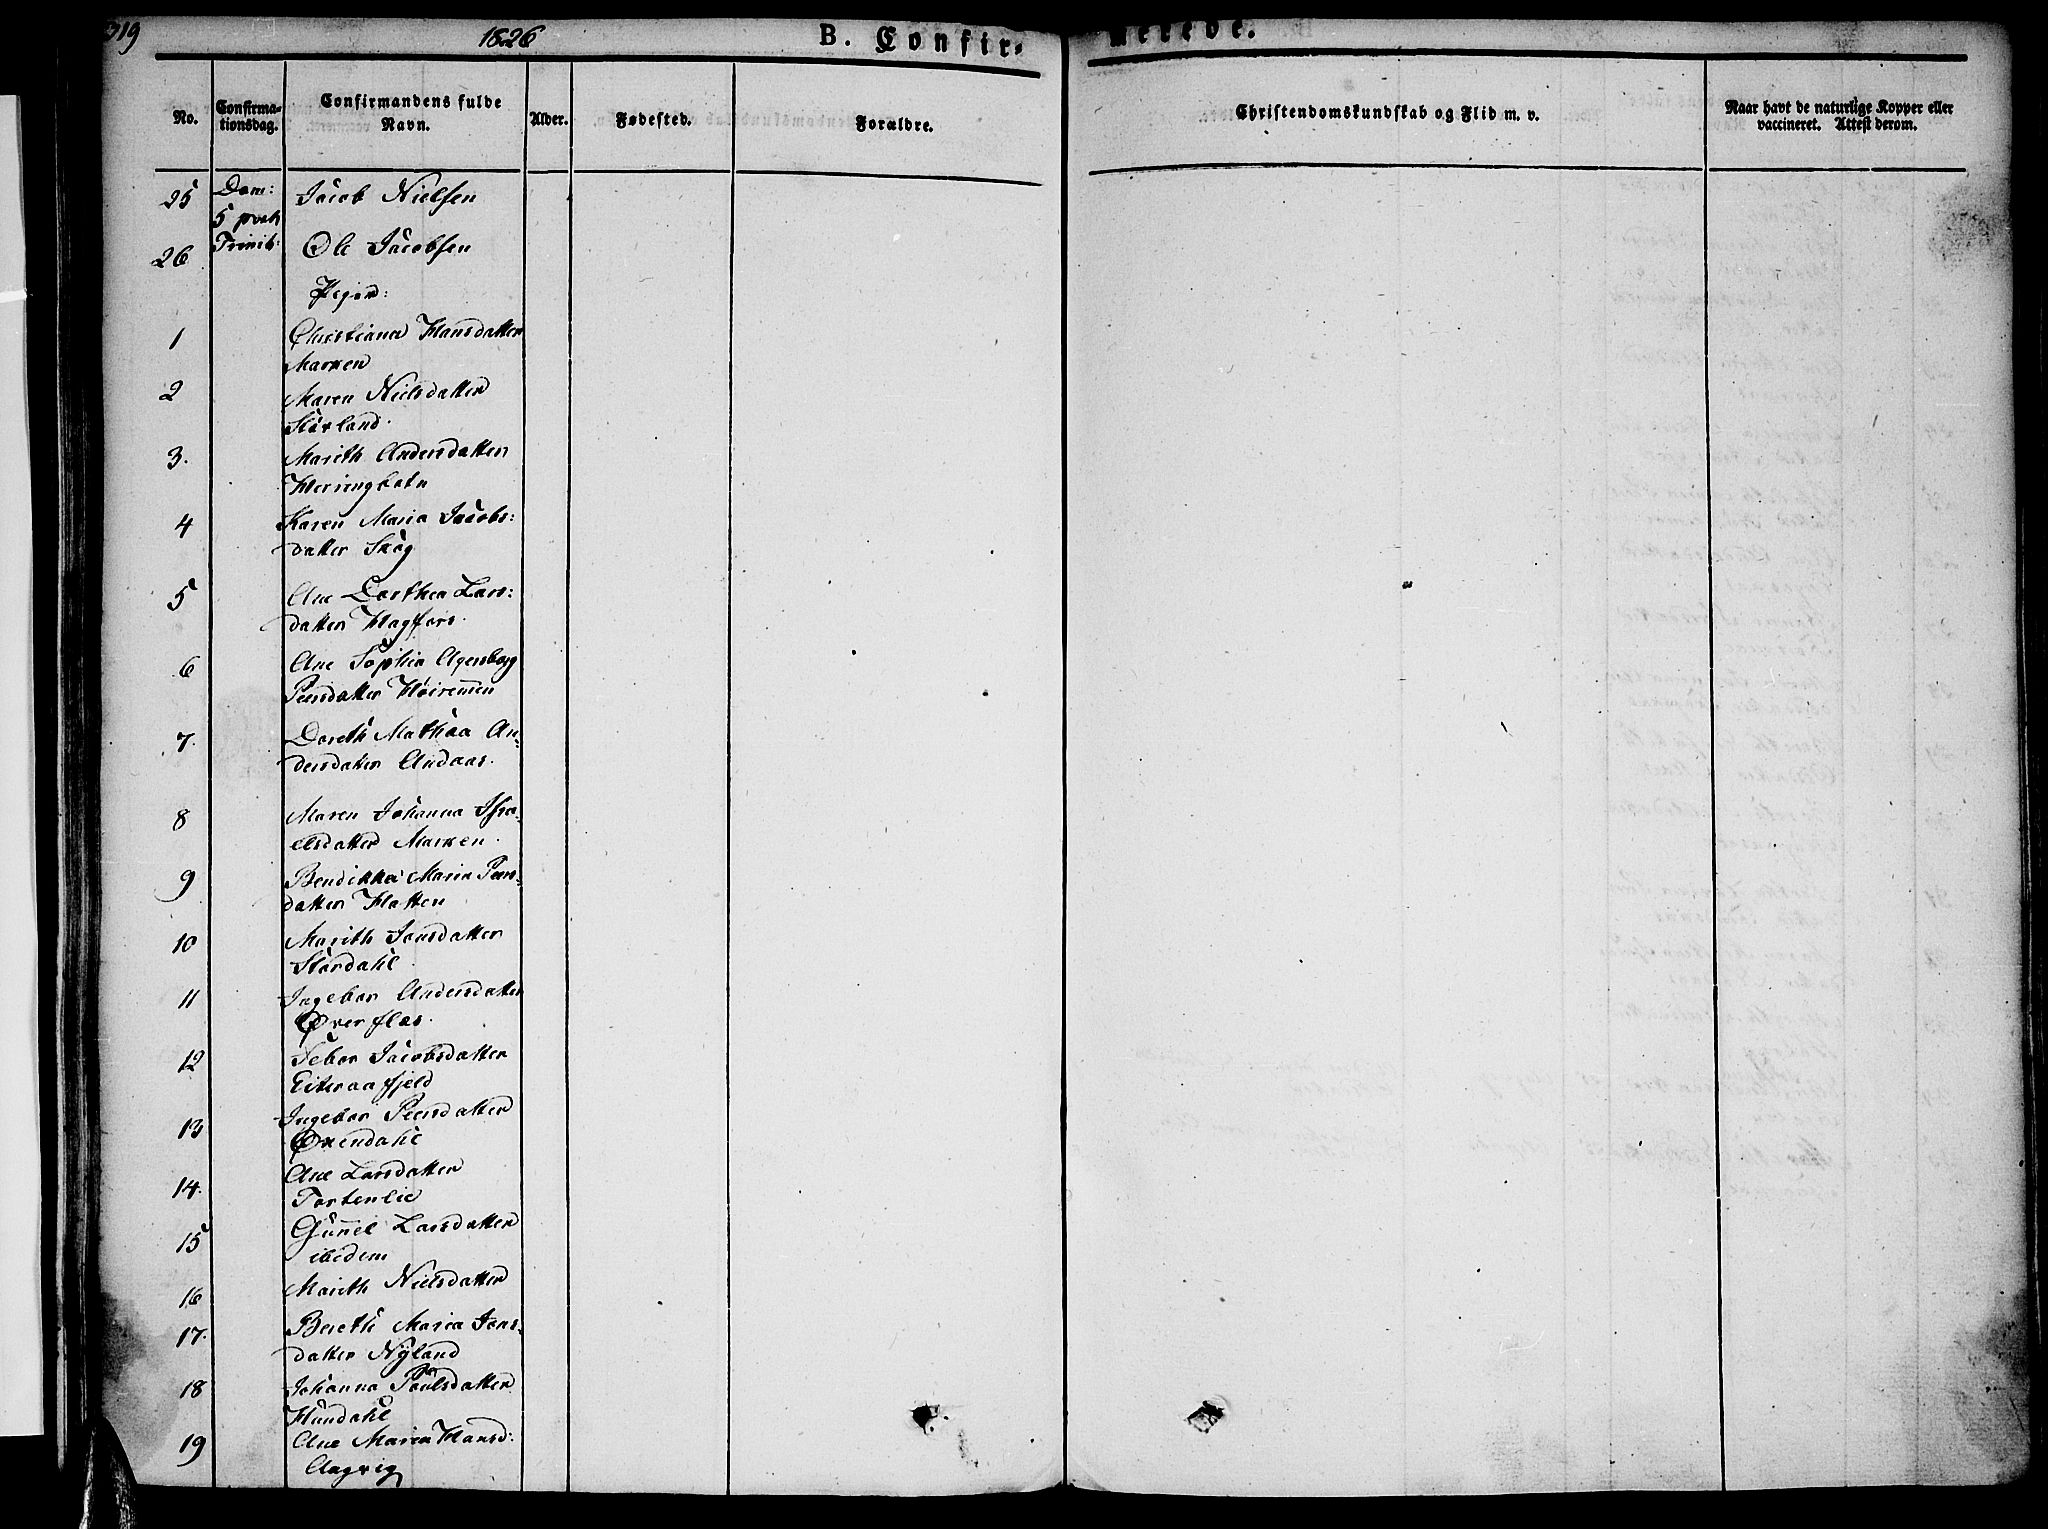 319 1826 B. Confir- merede.
No. Confirma-tionsdag. Confirmandens fulde Navn. Alder. Fødested. Forældre. Christendomskundskab og Flid m. v. Naar havt de naturlige Kopper eller vaccineret. Attest derom.
25 Dom: Jacob Nielsen
5 post
Trinit:
26 Ole Jacobsen
Piger:
1 Christiana Hansdatter
Marken
2 Maren Nielsdatter
3. Marith Andersdatter
Herringbotn
4 Karen Maria Jacobs:
datter Skog
5 Ane Dorthea Lars:
datter Hagfors.
6 Ane Sophia Agensborg
Peersdatter Høiremen
7. Doreth Mathæa An-
dersdatter Andaas.
8 Maren Johanna Isra-
elsdatter Marken.
9 Bendikka Maria Peers-
datter Hatten
10 Marith Jonsdatter
Stordahl
11 Ingebor Andersdatter
Øverflæs.
12 Sebor Jacobsdatter
Eiteraafjeld
13 Ingebor Peersdatter
Øxendahl
14. Ane Larsdatter
Tortenlie
15 Gunnel Larsdatter
ibidem
16 Marith Nielsdatter
17. Bereth Maria Jons-
datter Nyland
18 Johanna Paulsdatter
Hundahl
19 Ane Maren Hansd:
Aagvig